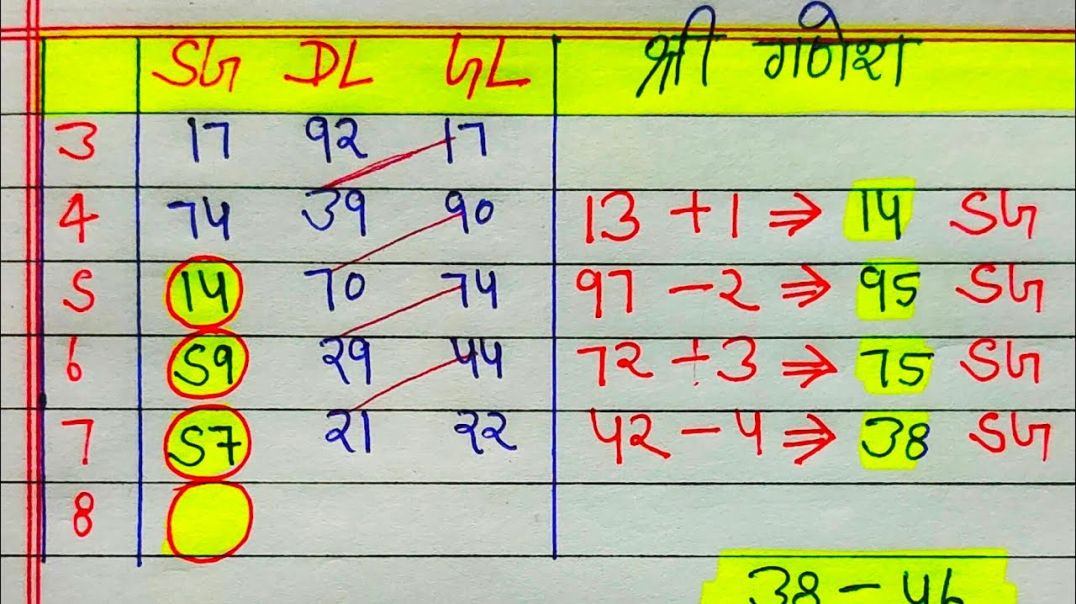 SG DL GL श्री गणेश
3 17 92 17
4 74 39 90 13 +1 ⇒ 14 SG
5 14 70 74 97 -2 ⇒ 95 SG
6 59 29 44 72 +3 ⇒ 75 SG
7 57 21 22 42 -4 ⇒ 38 SG
8
38 - 46